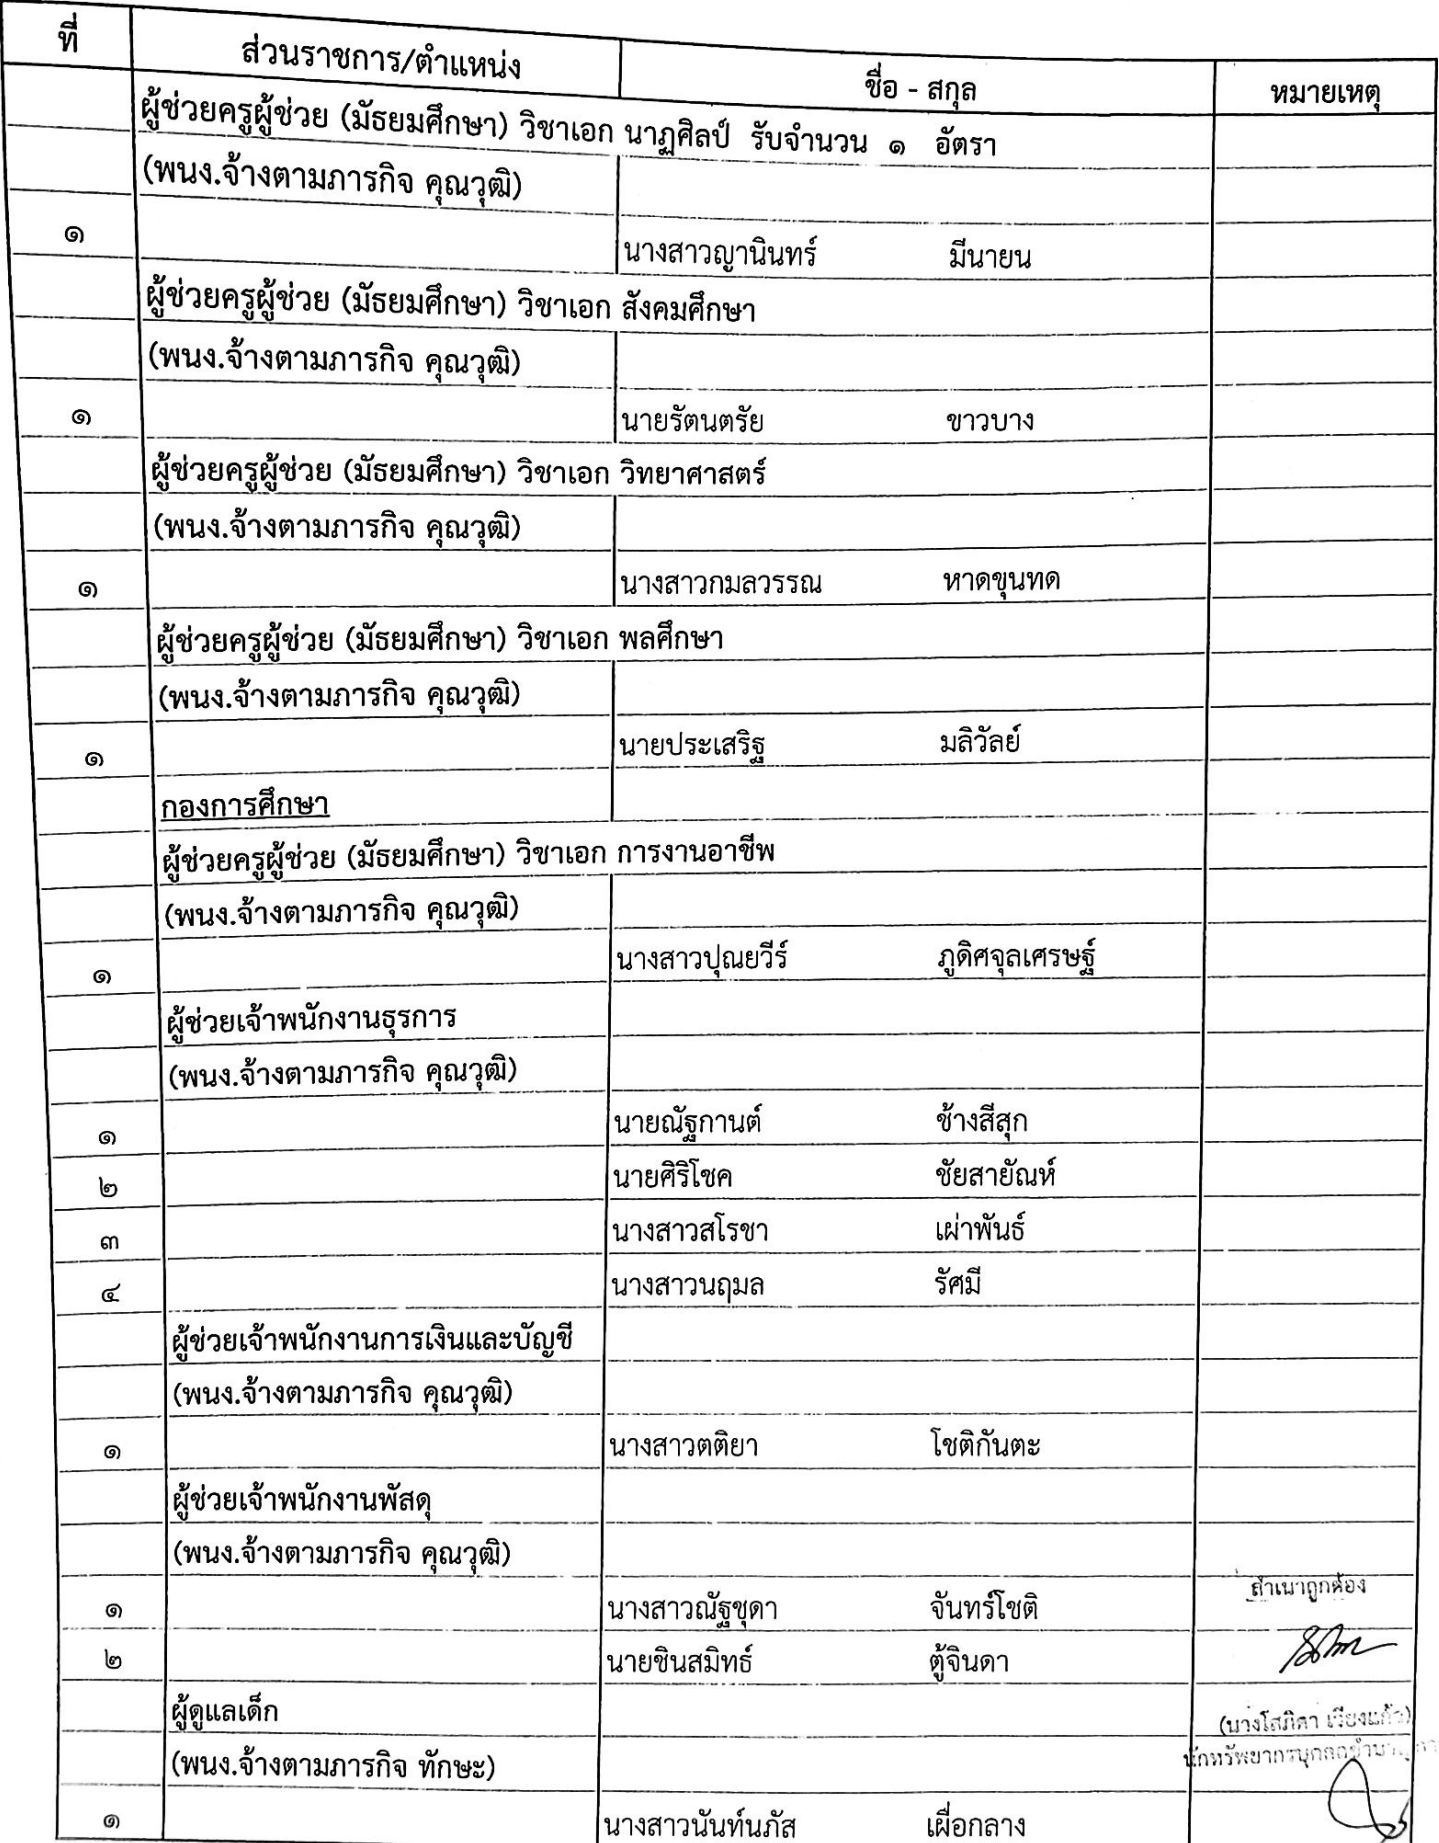 ที่ ส่วนราชการ/ตำแหน่ง ชื่อ - สกุล หมายเหตุ
ผู้ช่วยครูผู้ช่วย (มัธยมศึกษา) วิชาเอก นาฏศิลป์ รับจำนวน ๑ อัตรา
(พนง.จ้างตามภารกิจ คุณวุฒิ)
๑ นางสาวญานินทร์ มีนายน
ผู้ช่วยครูผู้ช่วย (มัธยมศึกษา) วิชาเอก สังคมศึกษา
(พนง.จ้างตามภารกิจ คุณวุฒิ)
๑ นายรัตนตรัย ขาวบาง
ผู้ช่วยครูผู้ช่วย (มัธยมศึกษา) วิชาเอก วิทยาศาสตร์
(พนง.จ้างตามภารกิจ คุณวุฒิ)
๑ นางสาวกมลวรรณ หาดขุนทด
ผู้ช่วยครูผู้ช่วย (มัธยมศึกษา) วิชาเอก พลศึกษา
(พนง.จ้างตามภารกิจ คุณวุฒิ)
๑ นายประเสริฐ มลิวัลย์
กองการศึกษา
ผู้ช่วยครูผู้ช่วย (มัธยมศึกษา) วิชาเอก การงานอาชีพ
(พนง.จ้างตามภารกิจ คุณวุฒิ)
๑ นางสาวปุณยวีร์ ภูดิศจุลเศรษฐ์
ผู้ช่วยเจ้าพนักงานธุรการ
(พนง.จ้างตามภารกิจ คุณวุฒิ)
๑ นายณัฐกานต์ ช้างสีสุก
๒ นายศิริโชค ชัยสายัณห์
๓ นางสาวสโรชา เผ่าพันธ์
๔ นางสาวนฤมล รัศมี
ผู้ช่วยเจ้าพนักงานการเงินและบัญชี
(พนง.จ้างตามภารกิจ คุณวุฒิ)
๑ นางสาวตติยา โชติกันตะ
ผู้ช่วยเจ้าพนักงานพัสดุ
(พนง.จ้างตามภารกิจ คุณวุฒิ)
สำเนาถูกต้อง
๑ นางสาวณัฐชุดา จันทร์โชติ
๒ นายชินสมิทธ์ ตู้จินดา
ผู้ดูแลเด็ก
(นางโสภิตา เรียงแก้ว)
(พนง.จ้างตามภารกิจ ทักษะ)
นักทรัพยากรบุคคลชำนาญการ
๑ นางสาวนันท์นภัส เผื่อกลาง